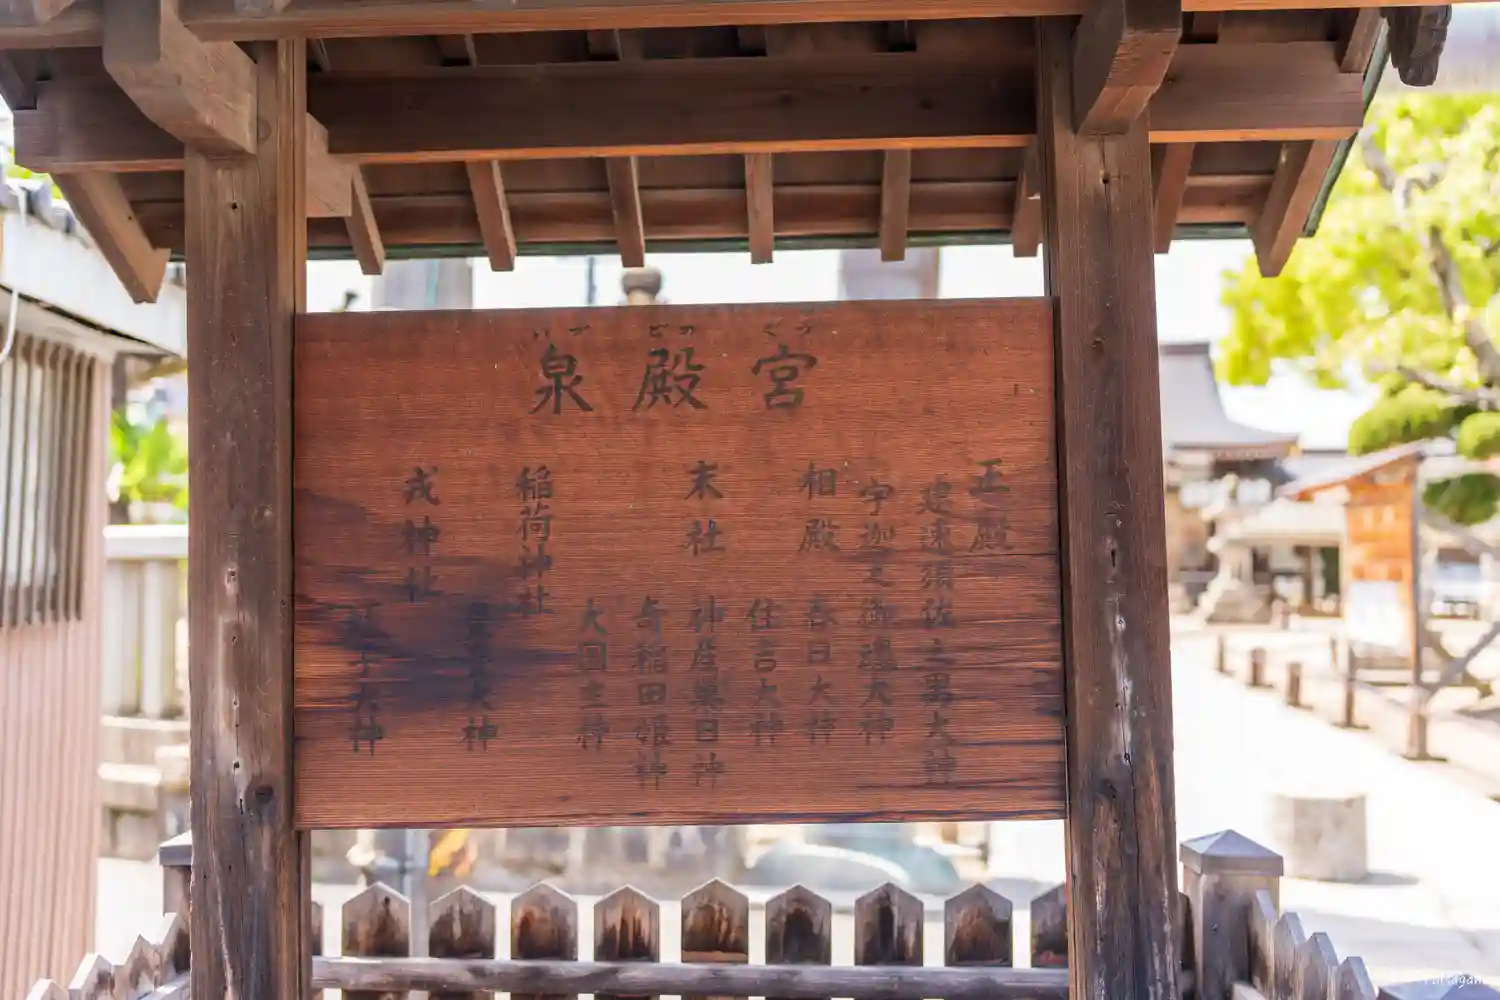 いづ どの ぐう
泉殿宮
正殿
建速須佐之男大神
宇迦之御魂大神
相殿
春日大神
住吉大神
末社
神産巣日神
奇稲田姫神
大国主神
稲荷神社
大神
戎神社
大神